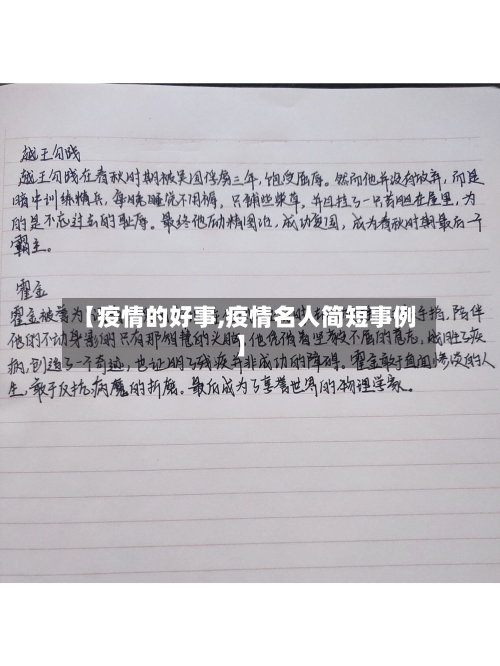 越王勾践
越王勾践在春秋时期被吴国俘虏三年,饱受屈辱。然而他并没有放弃,而是
暗中训练精兵,每晚睡觉不用褥,只铺些柴草,并且挂了一只苦胆在屋里,为
的是不忘过去的耻辱。最终他励精图治,成功复国,成为春秋时期最后一个
霸主。
霍金
霍金被誉为
【疫情的好事,疫情名人简短事例
】
陪伴
他的不动身影的只有那聪慧的头脑,他凭借着坚毅不屈的意志,战胜了疾
病,创造了一个奇迹,也证明了残疾并非成功的障碍。霍金敢于直面惨淡的人
生,敢于反抗病魔的折磨。最后成为了享誉世界的物理学家。